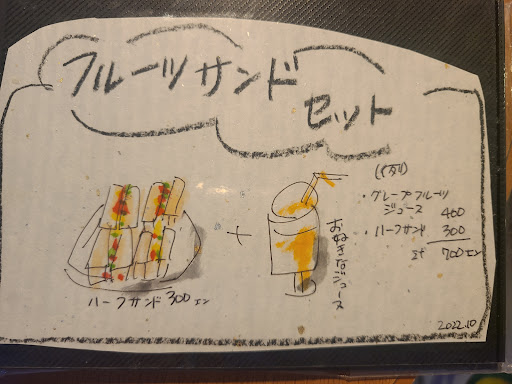 フルーツサンド
セット
ハーフサンド 300エン
+
お好きなジュース
(例)
・グレープフルーツ
ジュース 400
・ハーフサンド 300
計 700エン
2022.10